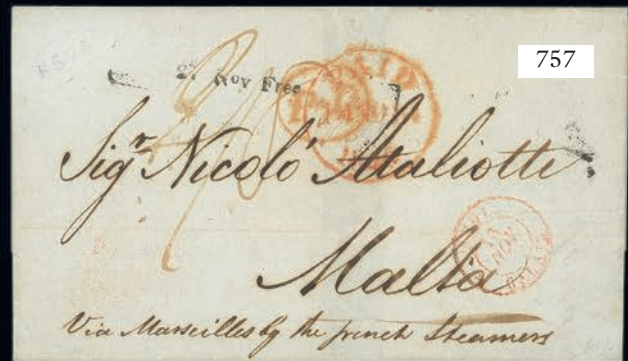 757
27 Nov Free
PAID
Sigr. Nicoló Ataliotti
Malta
Via Marseilles by the french Steamers